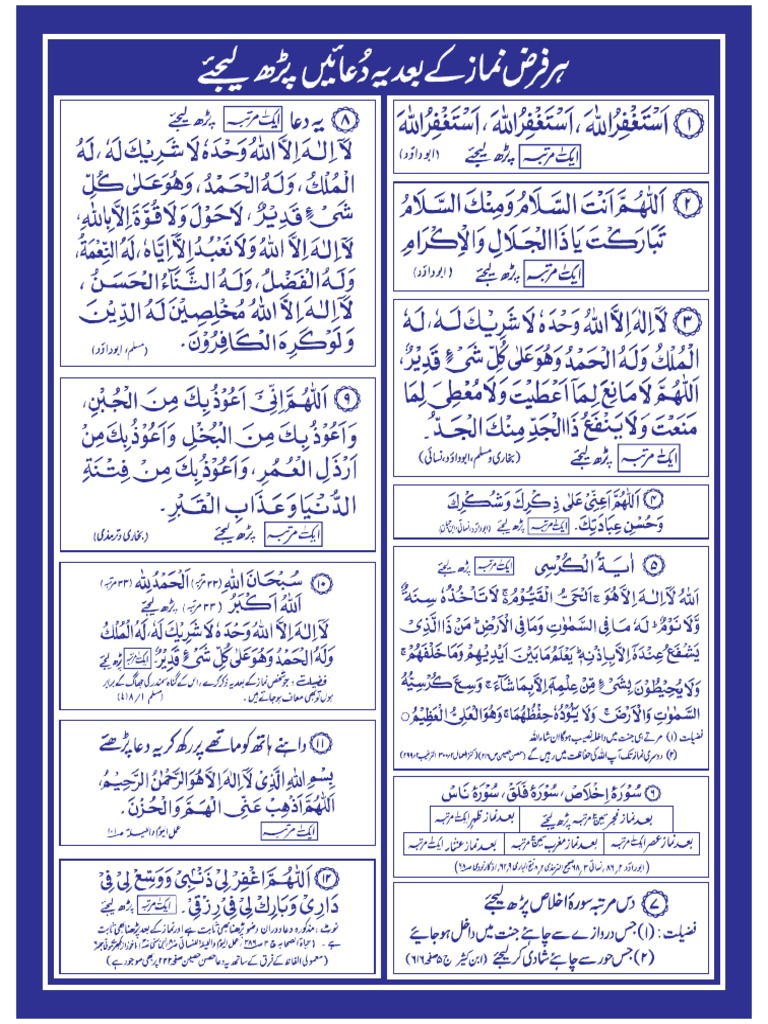 ہر فرض نماز کے بعد یہ دُعائیں پڑھ لیجئے
۱ اَسْتَغْفِرُاللهَ، اَسْتَغْفِرُاللهَ، اَسْتَغْفِرُاللهَ
ایک مرتبہ پڑھ لیجئے (ابوداؤد)
۲ اَللّٰهُمَّ اَنْتَ السَّلَامُ وَمِنْكَ السَّلَامُ
تَبَارَكْتَ يَاذَا الْجَلَالِ وَالْاِكْرَامِ
ایک مرتبہ پڑھ لیجئے (ابوداؤد)
۳ لَآ اِلٰهَ اِلَّا اللهُ وَحْدَهٗ لَا شَرِيْكَ لَهٗ، لَهُ
الْمُلْكُ وَلَهُ الْحَمْدُ وَهُوَ عَلٰى كُلِّ شَىْءٍ قَدِيْرٌ،
اَللّٰهُمَّ لَا مَانِعَ لِمَا اَعْطَيْتَ وَلَا مُعْطِىَ لِمَا
مَنَعْتَ وَلَا يَنْفَعُ ذَا الْجَدِّ مِنْكَ الْجَدُّ۔
ایک مرتبہ پڑھ لیجئے (بخاری و مسلم، ابوداؤد، نسائی)
۴ اَللّٰهُمَّ اَعِنِّىْ عَلٰى ذِكْرِكَ وَشُكْرِكَ
وَحُسْنِ عِبَادَتِكَ۔ ایک مرتبہ پڑھ لیجئے
۵ اٰيَةُ الْكُرْسِى ایک مرتبہ پڑھ لیجئے
اَللهُ لَآ اِلٰهَ اِلَّا هُوَ ۚ اَلْحَىُّ الْقَيُّوْمُ ۚ لَا تَاْخُذُهٗ سِنَةٌ
وَّلَا نَوْمٌ ؕ لَهٗ مَا فِى السَّمٰوٰتِ وَمَا فِى الْاَرْضِ ؕ مَنْ ذَا الَّذِىْ
يَشْفَعُ عِنْدَهٗ اِلَّا بِاِذْنِهٖ ؕ يَعْلَمُ مَا بَيْنَ اَيْدِيْهِمْ وَمَا خَلْفَهُمْ ۚ
وَلَا يُحِيْطُوْنَ بِشَىْءٍ مِّنْ عِلْمِهٖٓ اِلَّا بِمَا شَآءَ ۚ وَسِعَ كُرْسِيُّهُ
السَّمٰوٰتِ وَالْاَرْضَ ۚ وَلَا يَئُوْدُهٗ حِفْظُهُمَا ۚ وَهُوَ الْعَلِىُّ الْعَظِيْمُ ○
فضیلت (۱) مرتے ہی جنت میں داخلہ نصیب ہوگا ان شاء اللہ
(۲) دوسری نماز تک آپ اللہ کی حفاظت میں رہیں گے
۶ سُوْرَۃُ اِخْلَاص، سُوْرَۃُ فَلَق، سُوْرَۃُ نَاس
بعد نماز فجر تین مرتبہ پڑھ لیجئے بعد نماز ظہر ایک مرتبہ
بعد نماز عصر ایک مرتبہ بعد نماز مغرب تین مرتبہ بعد نماز عشاء ایک مرتبہ
۷ دس مرتبہ سورۂ اخلاص پڑھ لیجئے
فضیلت: (۱) جس دروازے سے چاہئے جنت میں داخل ہو جائیے
(۲) جس حور سے چاہئے شادی کر لیجئے (ابن کثیر ج ۵ صفحہ ۶۱۶)
۸ یہ دعا ایک مرتبہ پڑھ لیجئے
لَآ اِلٰهَ اِلَّا اللهُ وَحْدَهٗ لَا شَرِيْكَ لَهٗ، لَهُ
الْمُلْكُ، وَلَهُ الْحَمْدُ، وَهُوَ عَلٰى كُلِّ
شَىْءٍ قَدِيْرٌ، لَاحَوْلَ وَلَا قُوَّةَ اِلَّا بِاللهِ،
لَآ اِلٰهَ اِلَّا اللهُ وَلَا نَعْبُدُ اِلَّا اِيَّاهُ، لَهُ النِّعْمَةُ،
وَلَهُ الْفَضْلُ، وَلَهُ الثَّنَآءُ الْحَسَنُ،
لَآ اِلٰهَ اِلَّا اللهُ مُخْلِصِيْنَ لَهُ الدِّيْنَ
وَلَوْكَرِهَ الْكَافِرُوْنَ۔ (مسلم، ابوداؤد)
۹ اَللّٰهُمَّ اِنِّىْ اَعُوْذُبِكَ مِنَ الْجُبْنِ،
وَاَعُوْذُبِكَ مِنَ الْبُخْلِ وَاَعُوْذُبِكَ مِنْ
اَرْذَلِ الْعُمُرِ، وَاَعُوْذُبِكَ مِنْ فِتْنَةِ
الدُّنْيَا وَعَذَابِ الْقَبْرِ۔
ایک مرتبہ پڑھ لیجئے (بخاری و ترمذی)
۱۰ سُبْحَانَ اللهِ (۳۳ مرتبہ) اَلْحَمْدُ لِلّٰهِ (۳۳ مرتبہ)
اَللهُ اَكْبَرُ (۳۳ مرتبہ) پڑھ لیجئے
لَآ اِلٰهَ اِلَّا اللهُ وَحْدَهٗ لَا شَرِيْكَ لَهٗ، لَهُ الْمُلْكُ
وَلَهُ الْحَمْدُ وَهُوَ عَلٰى كُلِّ شَىْءٍ قَدِيْرٌ ایک مرتبہ پڑھ لیجئے
فضیلت: جو شخص نماز کے بعد یہ ذکر کرے، اس کے گناہ سمندر کی جھاگ کے برابر
ہوں تو بھی معاف ہو جاتے ہیں۔ (مسلم ۱/۴۱۸)
۱۱ داہنے ہاتھ کو ماتھے پر رکھ کر یہ دعا پڑھئے
بِسْمِ اللهِ الَّذِىْ لَآ اِلٰهَ اِلَّا هُوَ الرَّحْمٰنُ الرَّحِيْمُ،
اَللّٰهُمَّ اَذْهِبْ عَنِّى الْهَمَّ وَالْحُزْنَ۔
ایک مرتبہ
۱۲ اَللّٰهُمَّ اغْفِرْلِىْ ذَنْۢبِىْ وَوَسِّعْ لِىْ فِىْ
دَارِىْ وَبَارِكْ لِىْ فِىْ رِزْقِىْ۔ ایک مرتبہ پڑھ لیجئے
نوٹ: مذکورہ دعا دوران وضو پڑھنا بھی ثابت ہے اور نماز کے بعد پڑھنا بھی ثابت
ہے۔
(معمولی الفاظ کے فرق کے ساتھ یہ دعا حصن حصین صفحہ ۲۲۲ پر بھی موجود ہے)